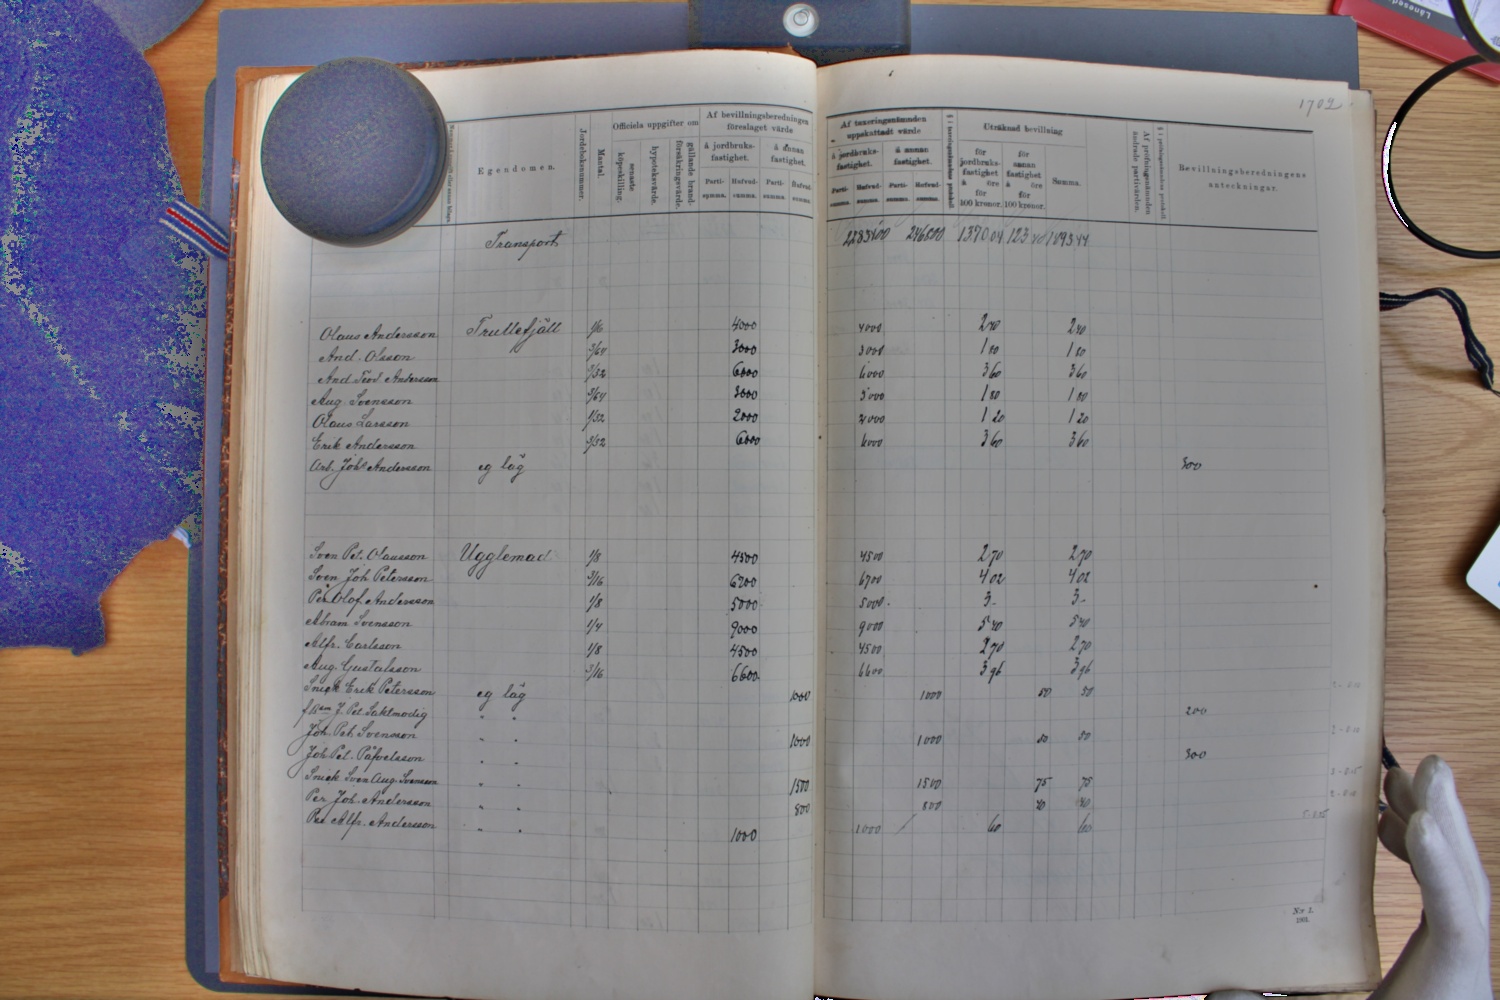 1702
Egendomen.
Jordeboksnummer.
Mantal.
Officiela uppgifter om
senaste köpeskilling.
hypoteksvärde.
gällande brand-försäkringsvärde.
Af bevillningsberedningen föreslaget värde
å jordbruks-fastighet.
å annan fastighet.
Parti-summa.
Hufvud-summa.
Parti-summa.
Hufvud-summa.
Af taxeringsnämnden uppskattadt värde
å jordbruks-fastighet.
å annan fastighet.
Parti-summa.
Hufvud-summa.
Parti-summa.
Hufvud-summa.
Uträknad bevillning
för jordbruks-fastighet à öre för 100 kronor.
för annan fastighet à öre för 100 kronor.
Summa.
Af pröfningsnämnden ändrade partivärden.
Bevillningsberedningens anteckningar.
Transport 2283400 246800 1370 04 123 40 1493 44
Olaus Andersson Trullefjäll 1/6 4000 4000 2 40 2 40
And. Olsson 3/64 3000 3000 1 80 1 80
And. Teod. Andersson 3/32 6000 6000 3 60 3 60
Aug. Svensson 3/64 3000 3000 1 80 1 80
Olaus Larsson 1/32 2000 2000 1 20 1 20
Erik Andersson 3/32 6000 6000 3 60 3 60
Arb. Joh. Andersson eg läg 300
Sven Pet. Olausson Ugglemad 1/8 4500 4500 2 70 2 70
Sven Joh Petersson 3/16 6700 6700 4 02 4 02
Per Olof Andersson 1/8 5000 5000. 3 - 3 -
Abram Svensson 1/4 9000 9000 5 40 5 40
Alfr. Carlsson 1/8 4500 4500 2 70 2 70
Aug. Gustafsson 3/16 6600 6600 3 96 3 96
Snick Erik Petersson eg läg 1000 1000 50 50
J. Pet. Saktmodig " " 200
Joh. Pet. Svensson " " 1000 1000 50 50
Joh. Pet. Påfvelsson " " 300
Snick Sven Aug. Svensson " " 1500 1500 75 75
Per Joh. Andersson " " 800 800 40 40
Per Alfr. Andersson " " 1000 1000 60 60
N:r 1.